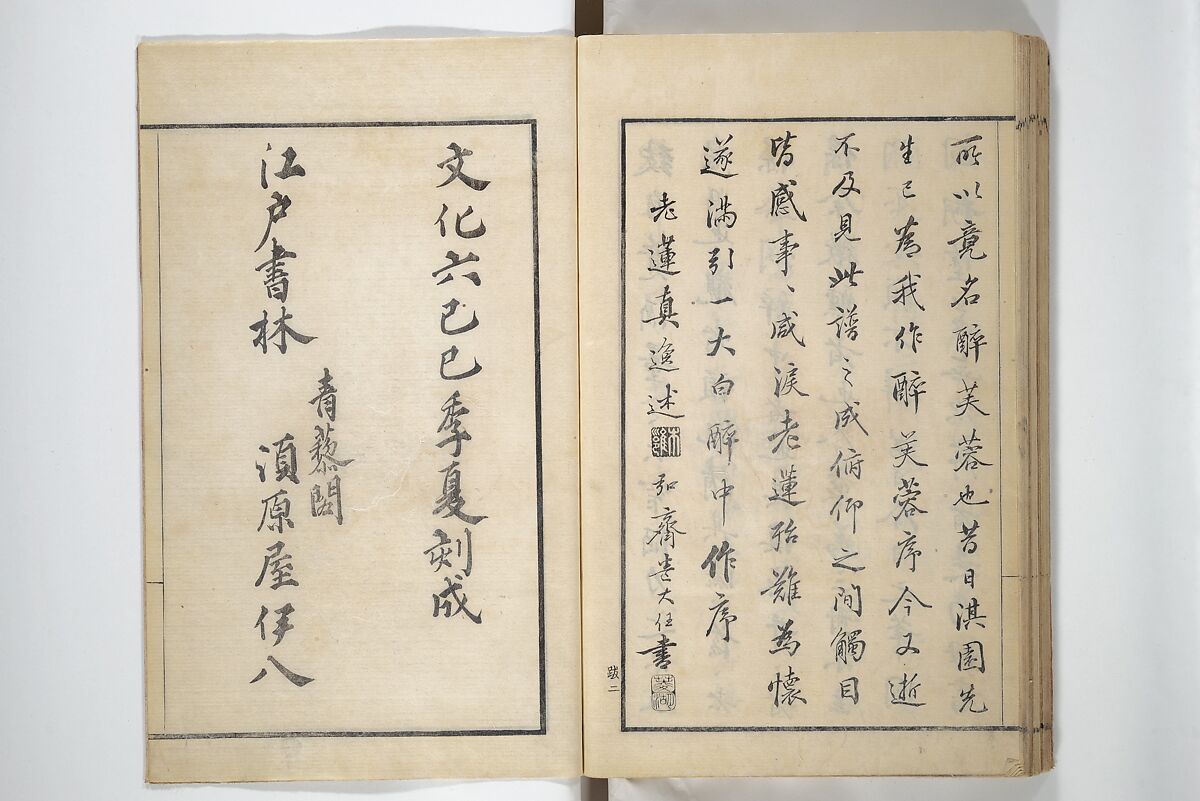 所以竟名醉芙蓉也昔日淇園先
生已為我作醉芙蓉序今又逝
不及見此譜之成俯仰之間觸目
皆感事〻咸淚老蓮殆難為懷
遂滿引一大白醉中作序
老蓮真逸述
弘齋卷大任書
菱湖
跋二
文化六己巳季夏刻成
江戶書林
青藜閣
須原屋伊八